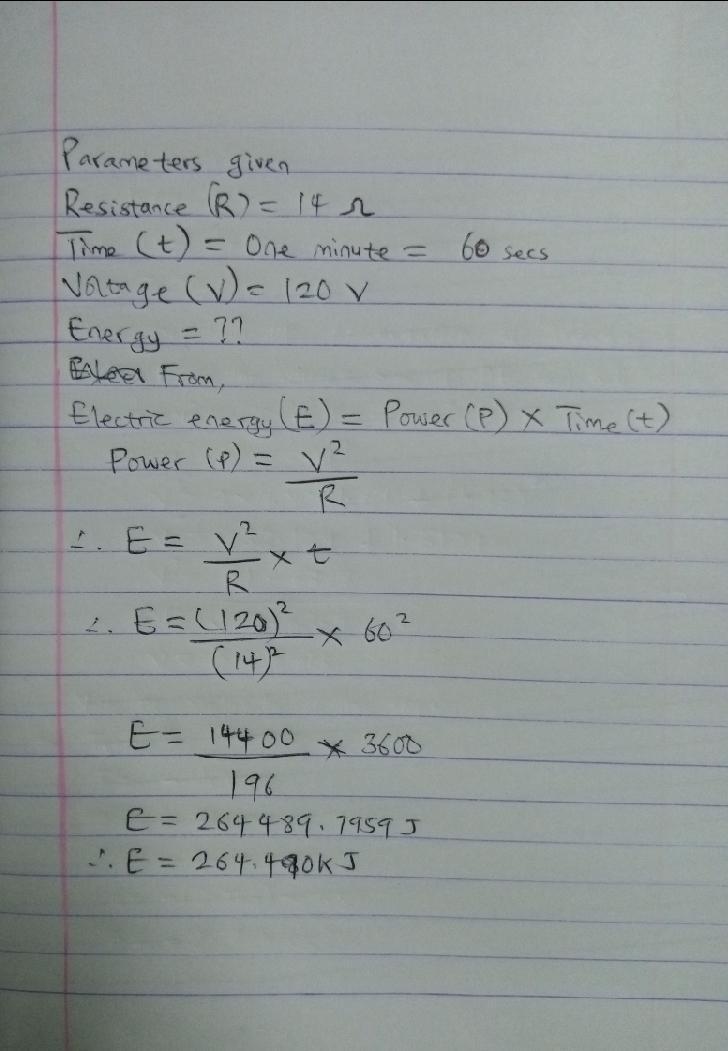 Parameters given
Resistance (R) = 14 Ω
Time (t) = One minute = 60 secs
Voltage (V) = 120 V
Energy = ??
From,
Electric energy (E) = Power (P) × Time (t)
Power (P) = V²
R
∴ E = V² × t
R
∴ E = (120)² × 60²
(14)²
E = 14400 × 3600
196
E = 264489.7959 J
∴ E = 264.490KJ